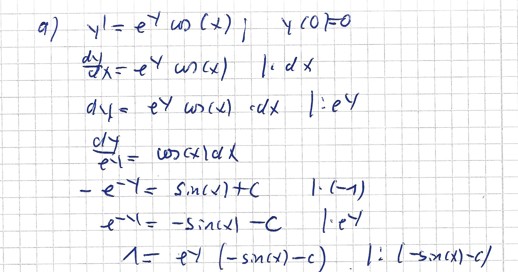 a) y' = e^y cos(x); y(0)=0
dy/dx = e^y cos(x) |· dx
dy = e^y cos(x) · dx |: e^y
dy/e^y = cos(x) dx
- e^-y = sin(x)+c |· (-1)
e^-y = -sin(x) - c |· e^y
1 = e^y (-sin(x)-c) |: (-sin(x)-c)